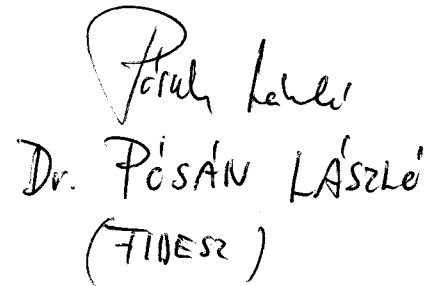 Pósán László
Dr. PÓSÁN LÁSZLÓ
(FIDESZ)